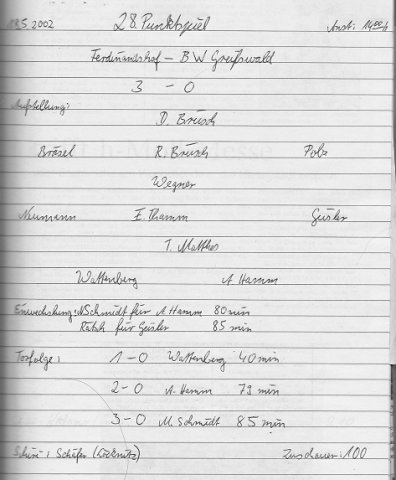 18.5 2002 28. Punktspiel Anst: 14⁰⁰ h
Ferdinandshof - BW Greifswald
3 - 0
Aufstellung:
D. Brüsch
Bräsel R. Brüsch Pobe
Wegner
Neumann E. Thamm Geisler
T. Matthes
Wattenberg A Hamm
Einwechslung: M Schmidt für A Hamm 80 min
für Geisler 85 min
Torfolge: 1-0 Wattenberg 40 min
2-0 A. Hamm 79 min
3-0 M. Schmidt 85 min
Schiri: Schäfer (Löcknitz) Zuschauer: 100